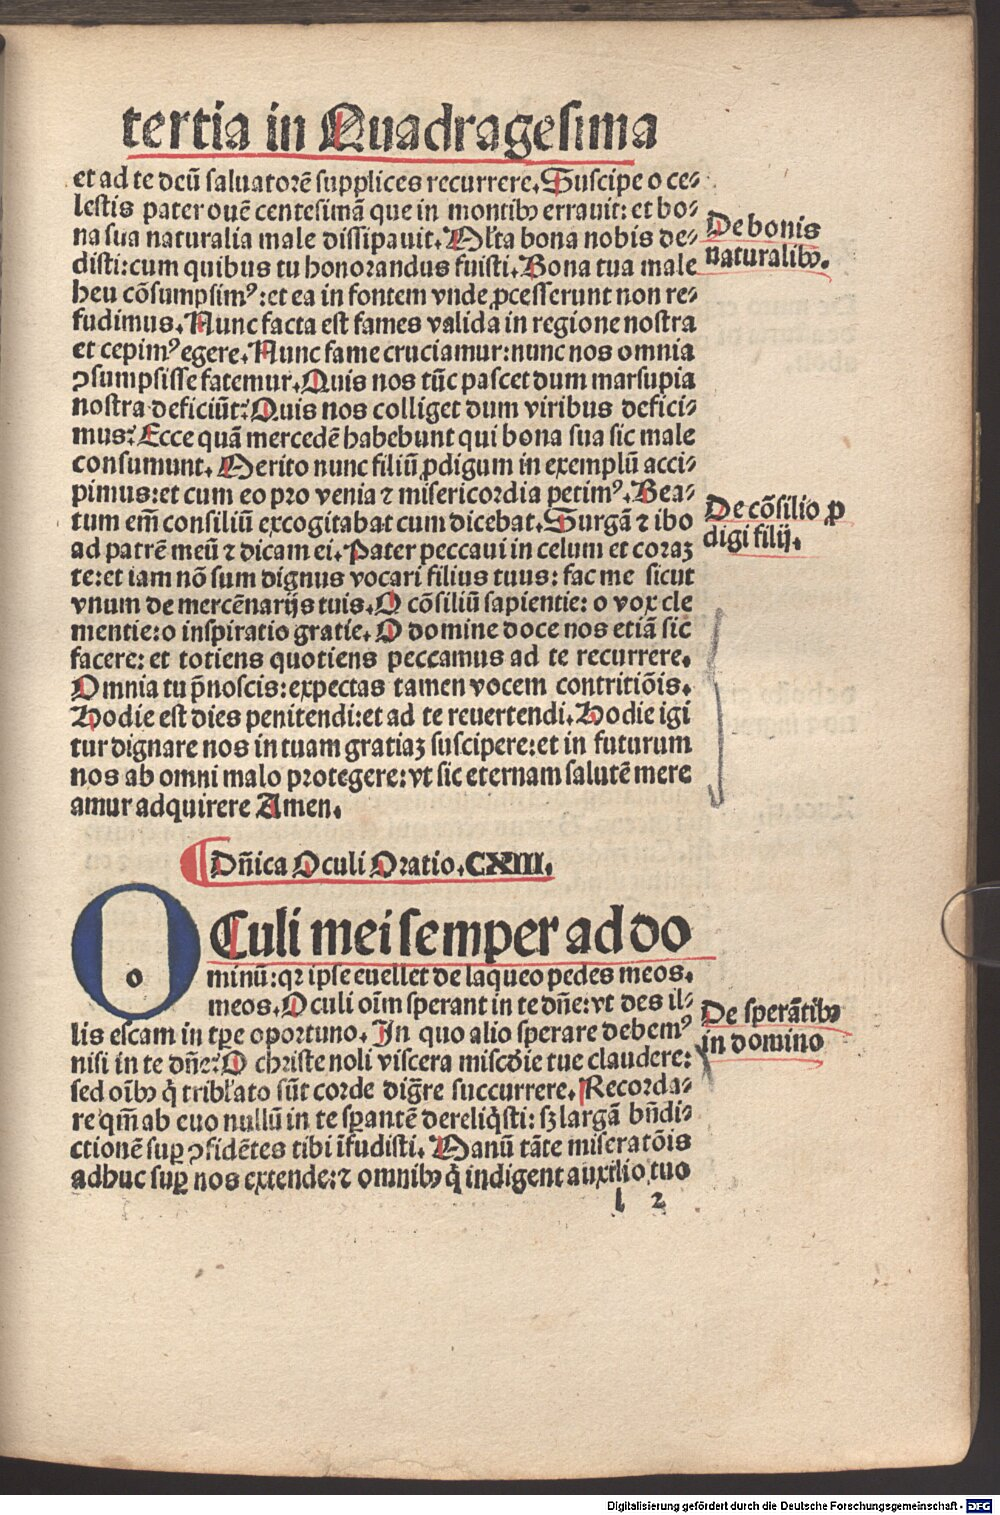 tertia in Quadragesima
et ad te deū saluatorē supplices recurrere. Suscipe o ce⸗
lestis pater ouē centesimā que in montibꝰ errauit: et bo⸗
na sua naturalia male dissipauit. Ml̄ta bona nobis de⸗
disti: cum quibus tu honorandus fuisti. Bona tua male
heu cōsumpsimꝰ: et ea in fontem vnde ꝓcesserunt non re⸗
fudimus. Nunc facta est fames valida in regione nostra
et cepimꝰ egere. Nunc fame cruciamur: nunc nos omnia
ꝯsumpsisse fatemur. Quis nos tūc pascet dum marsupia
nostra deficiūt? Quis nos colliget dum viribus defici⸗
mus? Ecce quā mercedē habebunt qui bona sua sic male
consumunt. Merito nunc filiū ꝓdigum in exemplū acci⸗
pimus: et cum eo pro venia ⁊ misericordia petimꝰ. Bea⸗
tum em̄ consiliū excogitabat cum dicebat. Surgā ⁊ ibo
ad patrē meū ⁊ dicam ei. Pater peccaui in celum et coraꝫ
te: et iam nō sum dignus vocari filius tuus: fac me sicut
vnum de mercēnarijs tuis. O cōsiliū sapientie: o vox cle
mentie: o inspiratio gratie. O domine doce nos etiā sic
facere: et totiens quotiens peccamus ad te recurrere.
Omnia tu p̄noscis: expectas tamen vocem contritiōis.
Hodie est dies penitendi: et ad te reuertendi. Hodie igi
tur dignare nos in tuam gratiaꝫ suscipere: et in futurum
nos ab omni malo protegere: vt sic eternam salutē mere
amur adquirere Amen.
De bonis
naturalibꝰ.
De cōsilio ꝓ
digi filij.
Dn̄ica Oculi Oratio. CXIII.
o
Culi mei semper ad do
minū: qꝛ ipse euellet de laqueo pedes meos.
meos. Oculi oīm sperant in te dn̄e: vt des il⸗
lis escam in tp̄e oportuno. In quo alio sperare debemꝰ
nisi in te dn̄e? O christe noli viscera miscd̄ie tue claudere:
sed oībꝰ q̄ tribl̄ato sūt corde dig̃re succurrere. Recorda⸗
re qm̄ ab euo nullū in te sꝑantē dereliq̄sti: sꝫ largā bn̄di⸗
ctionē suꝑ ꝯfidētes tibi īfudisti. Manū tāte miseratōis
adhuc suꝑ nos extende: ⁊ omnibꝰ q̄ indigent auxilio tuo
De sperātibꝰ
in domino
l 2
Digitalisierung gefördert durch die Deutsche Forschungsgemeinschaft - DFG